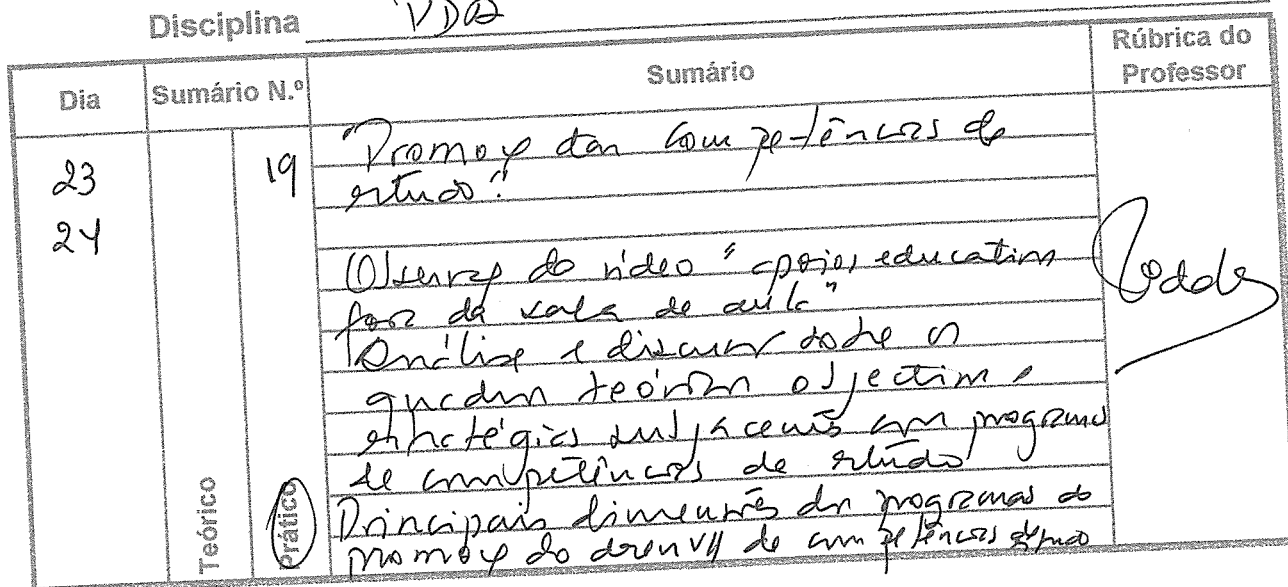 Disciplina VDA
Dia
Sumário N.º
Sumário
Rúbrica do
Professor
23
24
19
"Promoç das competências de
estudo"
Observaç do video "apoios educativos
fora da sala de aula"
Análise e discuss sobre os
quadros teóricos objectivos e
estratégias subjacentes aos programas
de competências de estudo
Principais dimensões dos programas de
promoç do de competências estudo
Teórico
Prático